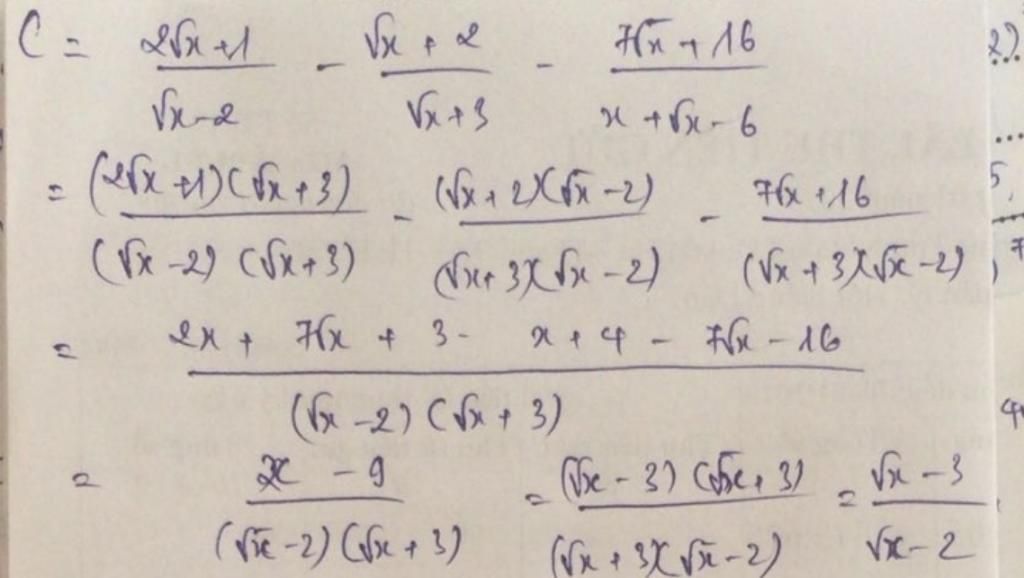 C = (2√x+1)/(√x-2) - (√x+2)/(√x+3) - (7√x+16)/(x+√x-6)
= ((2√x+1)(√x+3))/((√x-2)(√x+3)) - ((√x+2)(√x-2))/((√x+3)(√x-2)) - (7√x+16)/((√x+3)(√x-2))
= (2x + 7√x + 3 - x + 4 - 7√x - 16)/((√x-2)(√x+3))
= (x - 9)/((√x-2)(√x+3)) = ((√x-3)(√x+3))/((√x+3)(√x-2)) = (√x-3)/(√x-2)